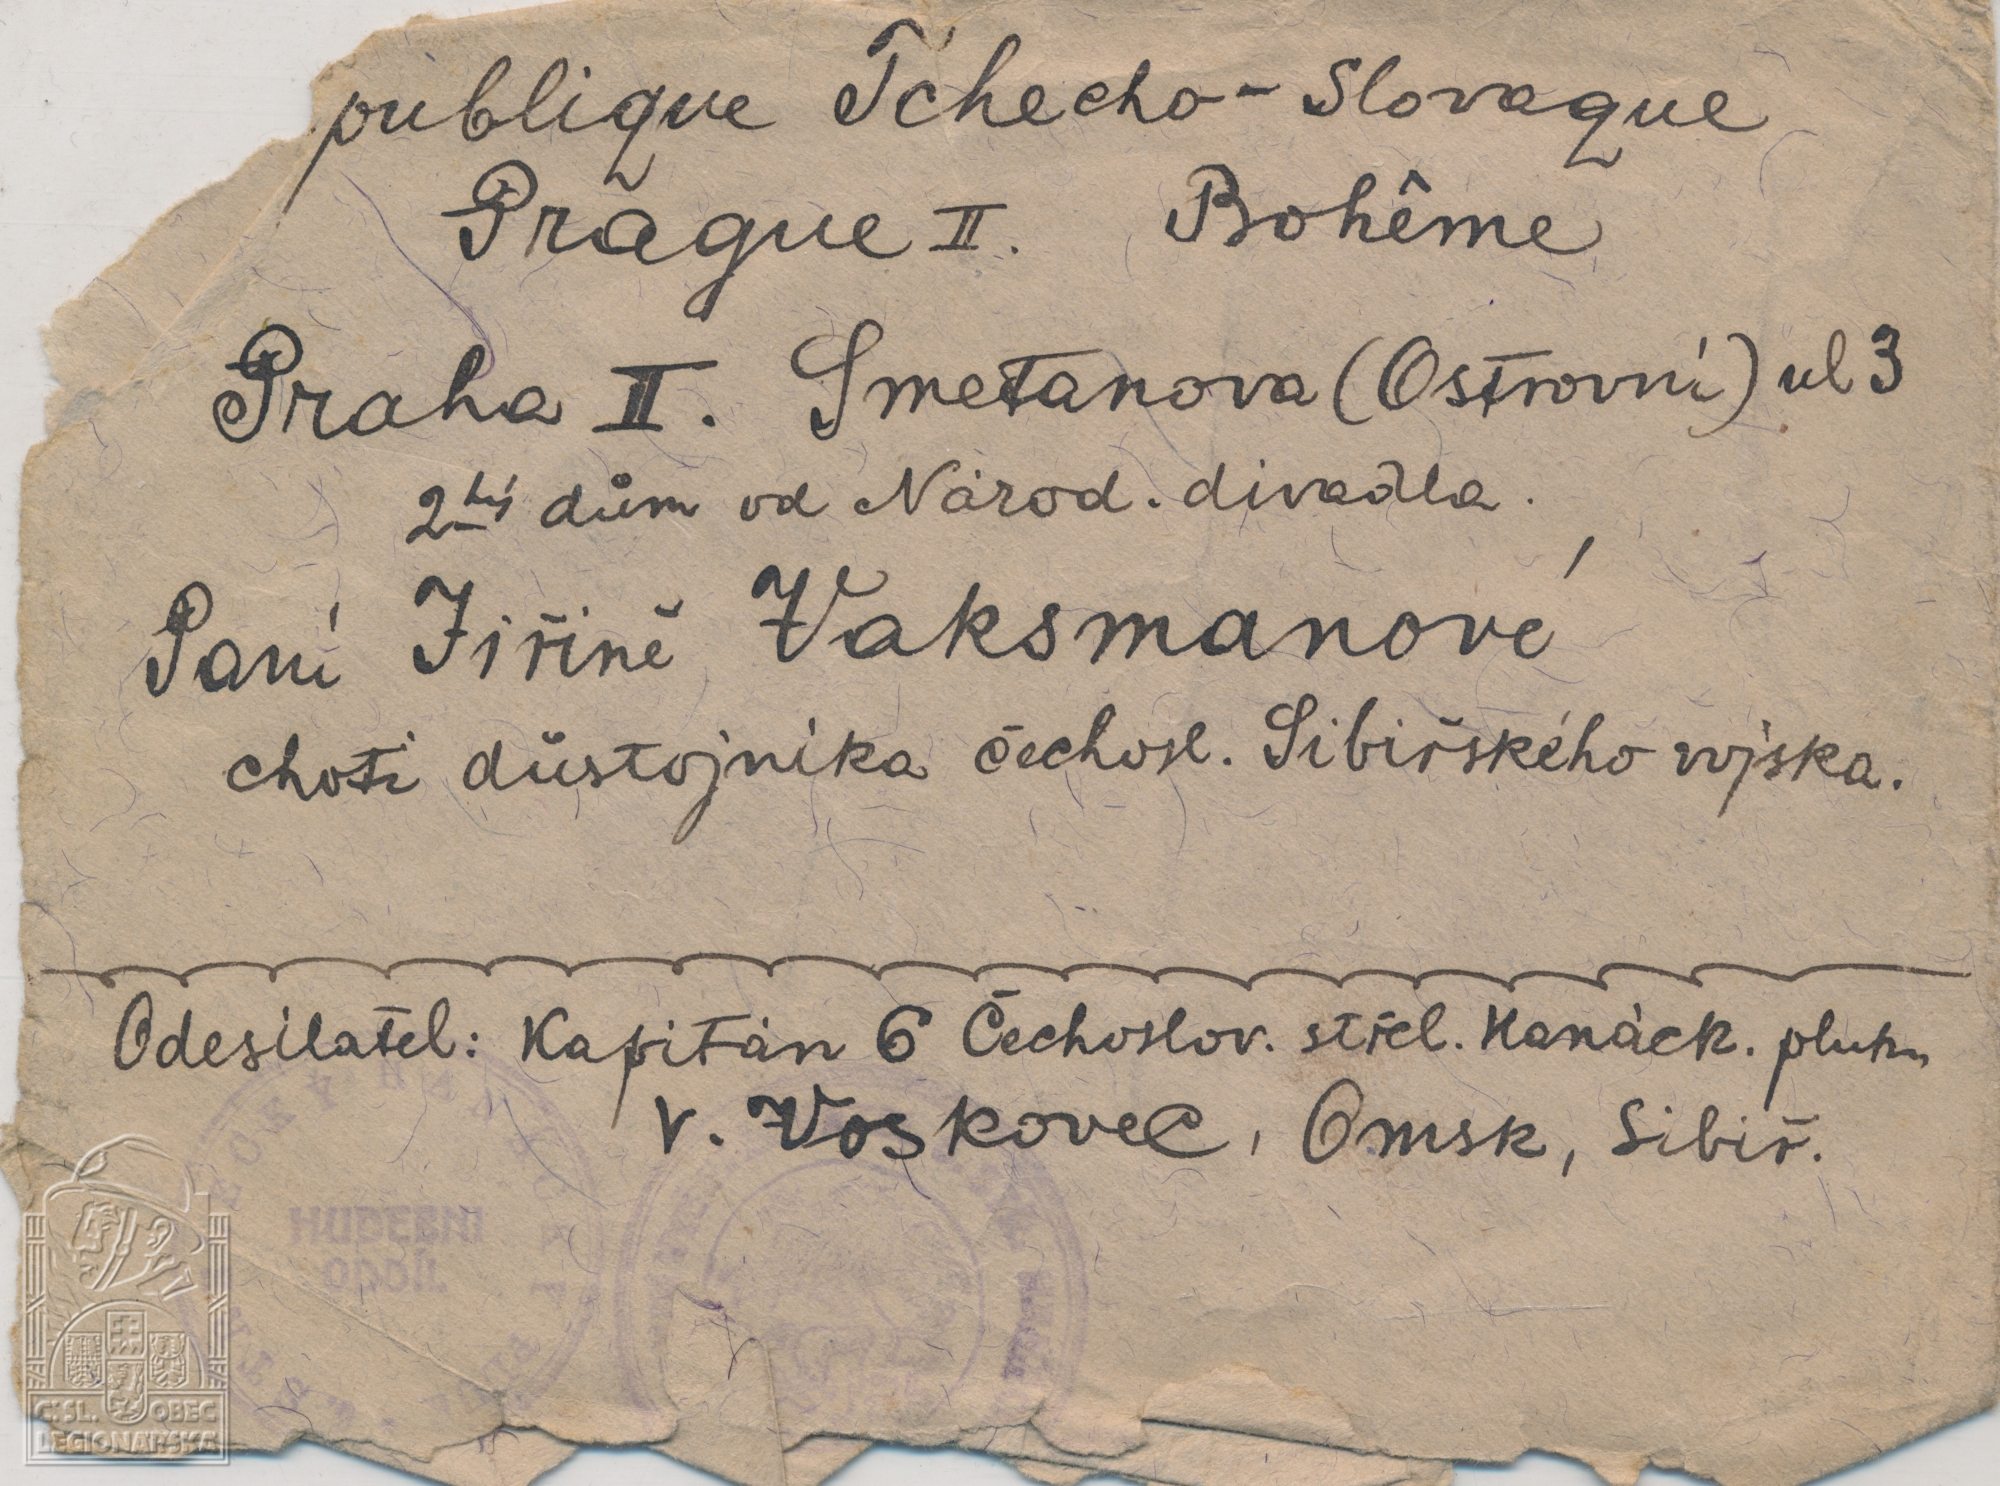 publique Tchecho-Slovaque
Prague II. Bohême
Praha II. Smetanova (Ostrovní) ul 3
2hý dům od Národ. divadla.
Paní Jiřině Vaksmanové
choti důstojníka čechosl. Sibiřského vojska.
Odesílatel: Kapitán 6 Čechoslov. střel. Hanáck. pluku
V. Voskovec, Omsk, Sibiř.
HUDEBNI
ODDÍL
Č.SL. OBEC
LEGIONÁŘSKÁ